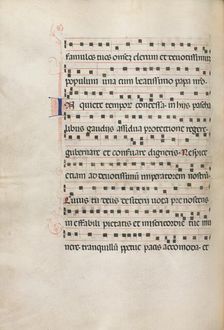 famulos tuos omnem clerum et devotissimum
populum una cum beatissimo papa nro
quiete tempor concessa in his pascha
libus gaudiis assidua protectione regere
gubernare et conservare digneris Respice
etiam ad devotissimum imperatorem nostrum
Cuius tu deus desiderii vota pre noscens
ineffabili pietatis et misericordie tue mu
nere tranquillum perpetue pacis accomoda et